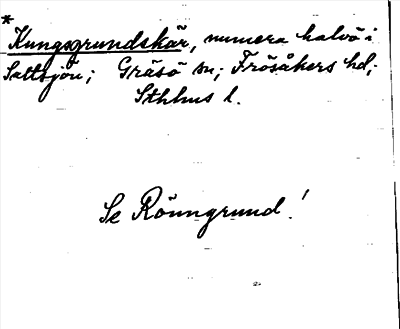 *
Kungsgrundskär, numera halvö i
Saltsjön; Gräsö sn; Frösåkers hd;
Sthlms l.
Se Rönngrund!